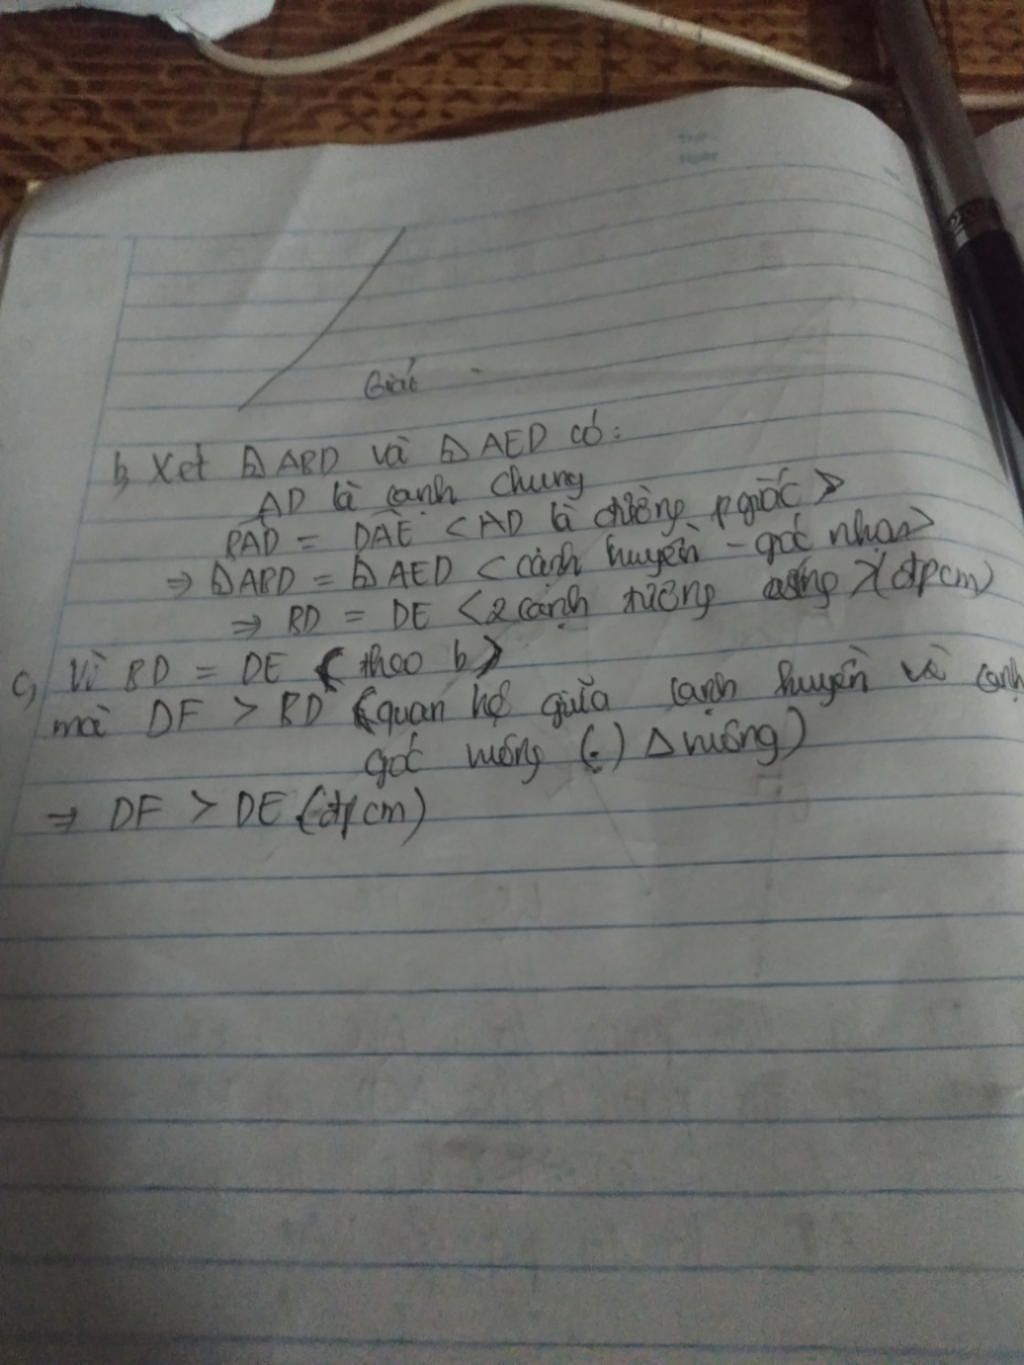 Giải
b, Xét △ ABD và △ AED có:
AD là cạnh chung
BAD = DAE < AD là đường p giác >
⇒ △ ABD = △ AED < cạnh huyền - góc nhọn >
⇒ BD = DE < 2 cạnh tương ứng > (đpcm)
c, Vì BD = DE (theo b)
mà DF > BD (quan hệ giữa cạnh huyền và cạnh
góc vuông (:) △ vuông)
⇒ DF > DE (đpcm)